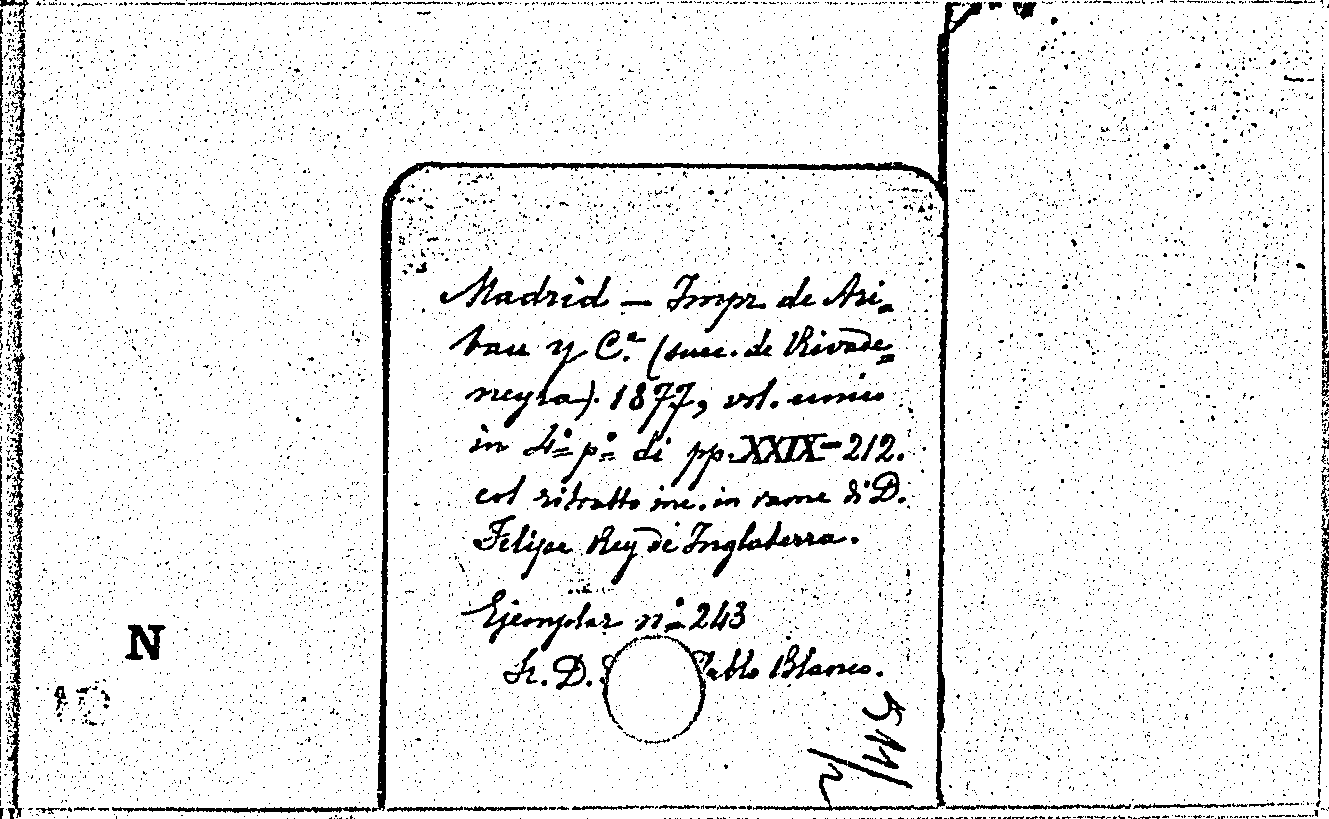 Madrid — Impr. de Ari-
bau y C.ª (succ. de Rivade=
neyra). 1877, vol. unico
in 4º pº di pp. XXIX-212.
col ritratto inc. in rame di D.
Felipe Rey de Inglaterra.
Ejemplar nº 243
Sr. D. Pablo Blanco.
N